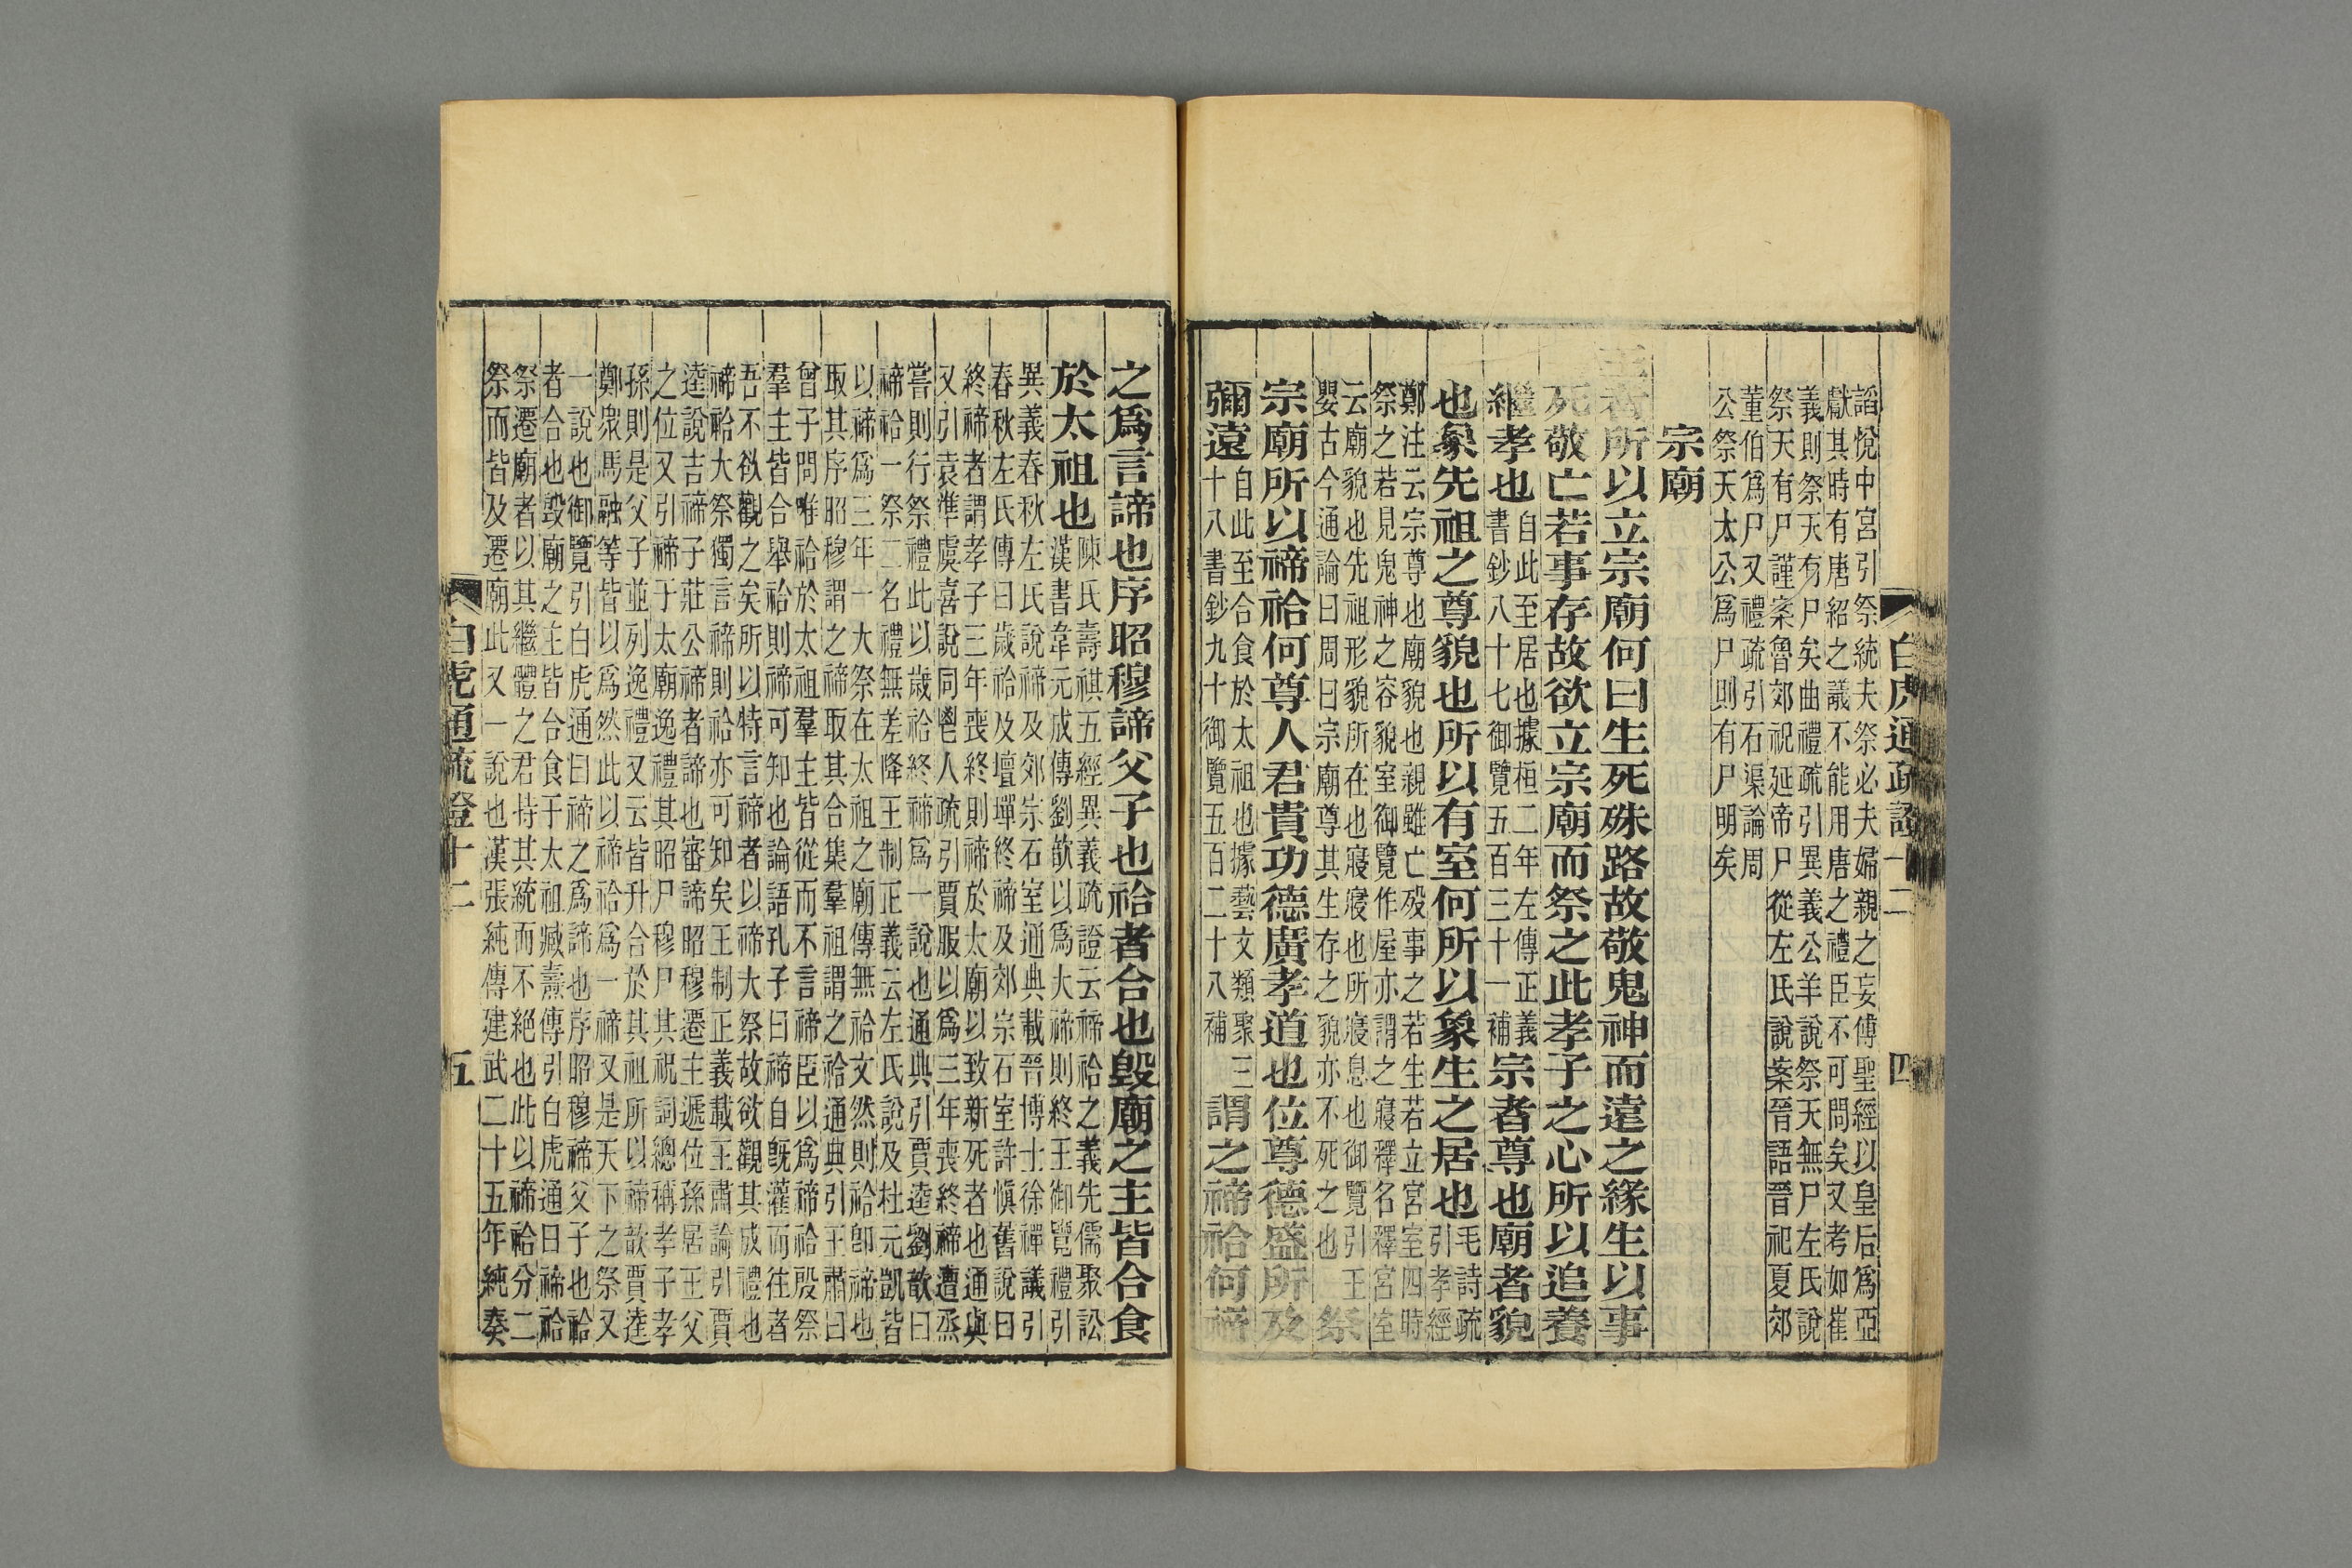 白虎通疏證十二
四
謟悅中宮引祭統夫祭必夫婦親之妄傅聖經以皇后爲亞
獻其時有唐紹之議不能用唐之禮臣不可問矣又考如崔
義則祭天有尸矣曲禮疏引異義公羊說祭天無尸左氏說
祭天有尸謹案魯郊祝延帝尸從左氏說案晉語晉祀夏郊
董伯爲尸又禮疏引石渠論周
公祭天太公爲尸則有尸明矣
宗廟
王者所以立宗廟何曰生死殊路故敬鬼神而遠之緣生以事
死敬亡若事存故欲立宗廟而祭之此孝子之心所以追養
繼孝也自此至居也據桓二年左傳正義
書鈔八十七御覽五百三十一補宗者尊也廟者貌
也象先祖之尊貌也所以有室何所以象生之居也毛詩疏
引孝經
鄭注云宗尊也廟貌也親雖亡歿事之若生若立宮室四時
祭之若見鬼神之容貌室御覽作屋亦謂之寢釋名釋宮室
云廟貌也先祖形貌所在也寢寢也所寢息也御覽引王
嬰古今通論曰周曰宗廟尊其生存之貌亦不死之也祭
宗廟所以禘祫何尊人君貴功德廣孝道也位尊德盛所及
彌遠自此至合食於太祖也據藝文類聚三
十八書鈔九十御覽五百二十八補謂之禘祫何禘
之爲言諦也序昭穆諦父子也祫者合也毀廟之主皆合食
於太祖也陳氏壽祺五經異義疏證云禘祫之義先儒聚訟
漢書韋元成傳劉歆以爲大禘則終王御覽禮引
異義春秋左氏說禘及郊宗石室通典載晉博士徐禪議引
春秋左氏傳曰歲祫及壇墠終禘及郊宗石室許慎舊說曰
終禘者謂孝子三年喪終則禘於太廟以致新死者也通典
又引袁準虞喜說同鬯人疏引賈服以爲三年喪終禘遭烝
嘗則行祭禮此以歲祫終禘爲一說也通典引賈逵劉歆曰
禘祫一祭二名禮無差降王制正義云左氏說及杜元凱皆
以禘爲三年一大祭在太祖之廟傳無祫文然則祫卽禘也
取其序昭穆謂之禘取其合集羣祖謂之祫通典引王肅曰
曾子問唯祫於太祖羣主皆從而不言禘臣以爲禘祫殷祭
羣主皆合舉祫則禘可知也論語孔子曰禘自旣灌而往者
吾不欲觀之矣所以特言禘者以禘大祭故欲觀其成禮也
禘祫大祭獨言禘則祫亦可知矣王制正義載王肅論引賈
逵說吉禘子莊公禘者諦也審諦昭穆遷主遞位孫居王父
之位又引禘于太廟逸禮其昭尸穆尸其祝詞總稱孝子孝
孫則是父子並列逸禮又云皆升合於其祖所以禘歆賈逵
鄭衆馬融等皆以爲然此以禘祫爲一禘又是天下之祭又
一說也御覽引白虎通曰禘之爲諦也序昭穆禘父子也祫
者合也毀廟之主皆合食于太祖臧燾傳引白虎通曰禘祫
祭遷廟者以其繼體之君持其統而不絕也此以禘祫分二
祭而皆及遷廟此又一說也漢張純傳建武二十五年純奏
白虎通疏證十二
五